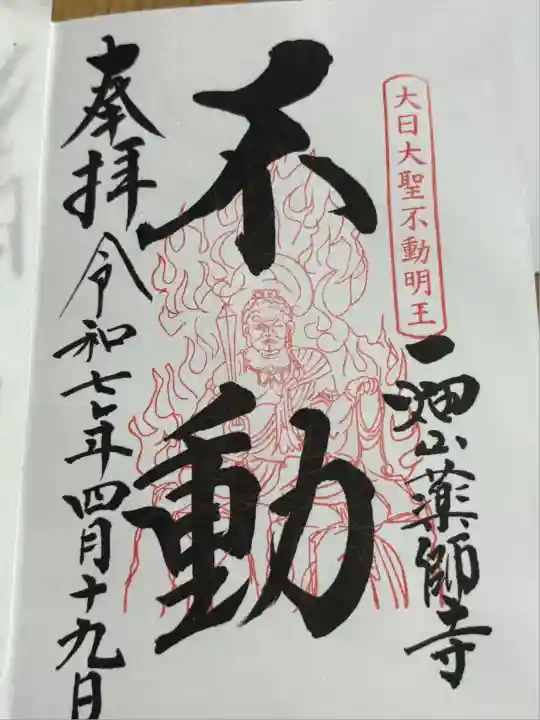 大日大聖不動明王
一畑山薬師寺
不動
奉拝
令和七年四月十九日